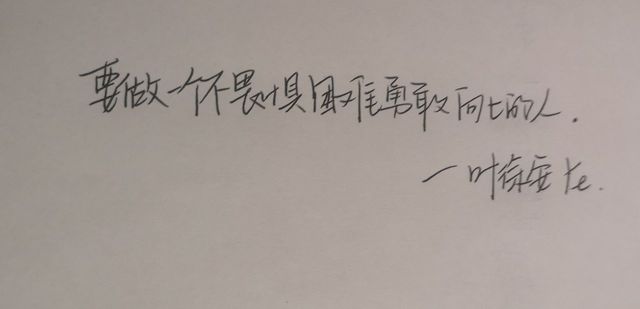 要做一个不畏惧困难勇敢向上的人.
—叶徐安 Ye.